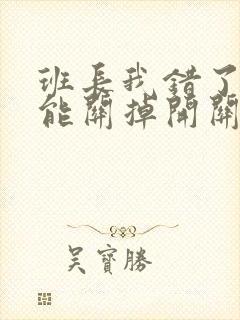 班長我錯了
能關掉開關
吳寶勝